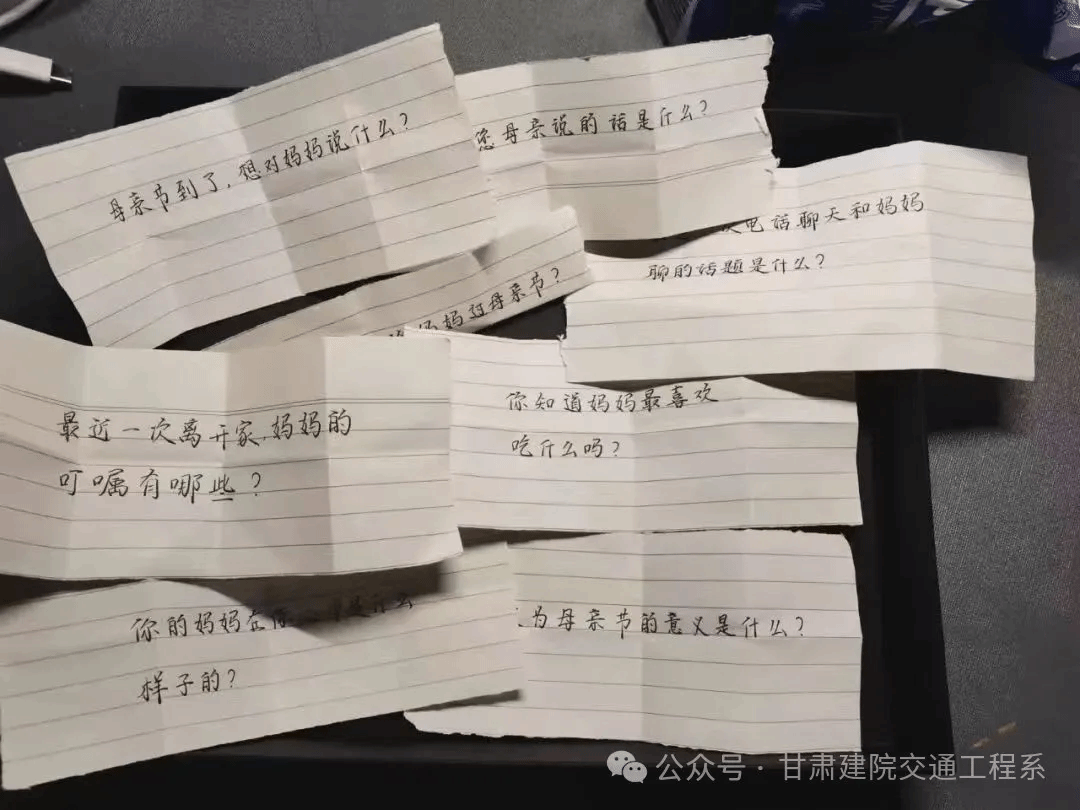 母亲节到了，想对妈妈说什么？
您母亲说的话是什么？
电话聊天和妈妈
聊的话题是什么？
妈妈过母亲节？
最近一次离开家，妈妈的
叮嘱有哪些？
你知道妈妈最喜欢
吃什么吗？
你的妈妈在你是什么
样子的？
为母亲节的意义是什么？
公众号·甘肃建院交通工程系